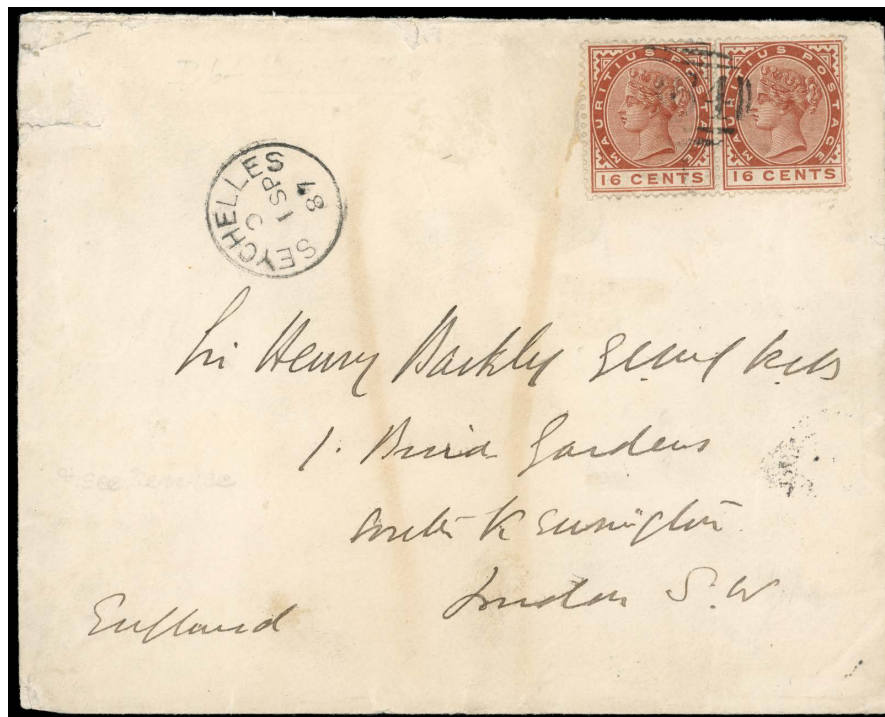 MAURITIUS POSTAGE
16 CENTS
MAURITIUS POSTAGE
16 CENTS
SEYCHELLES
C
1 SP
87
Sir Henry Barkly GCMG KCB
1. Bina Gardens
South Kensington
London S.W
England